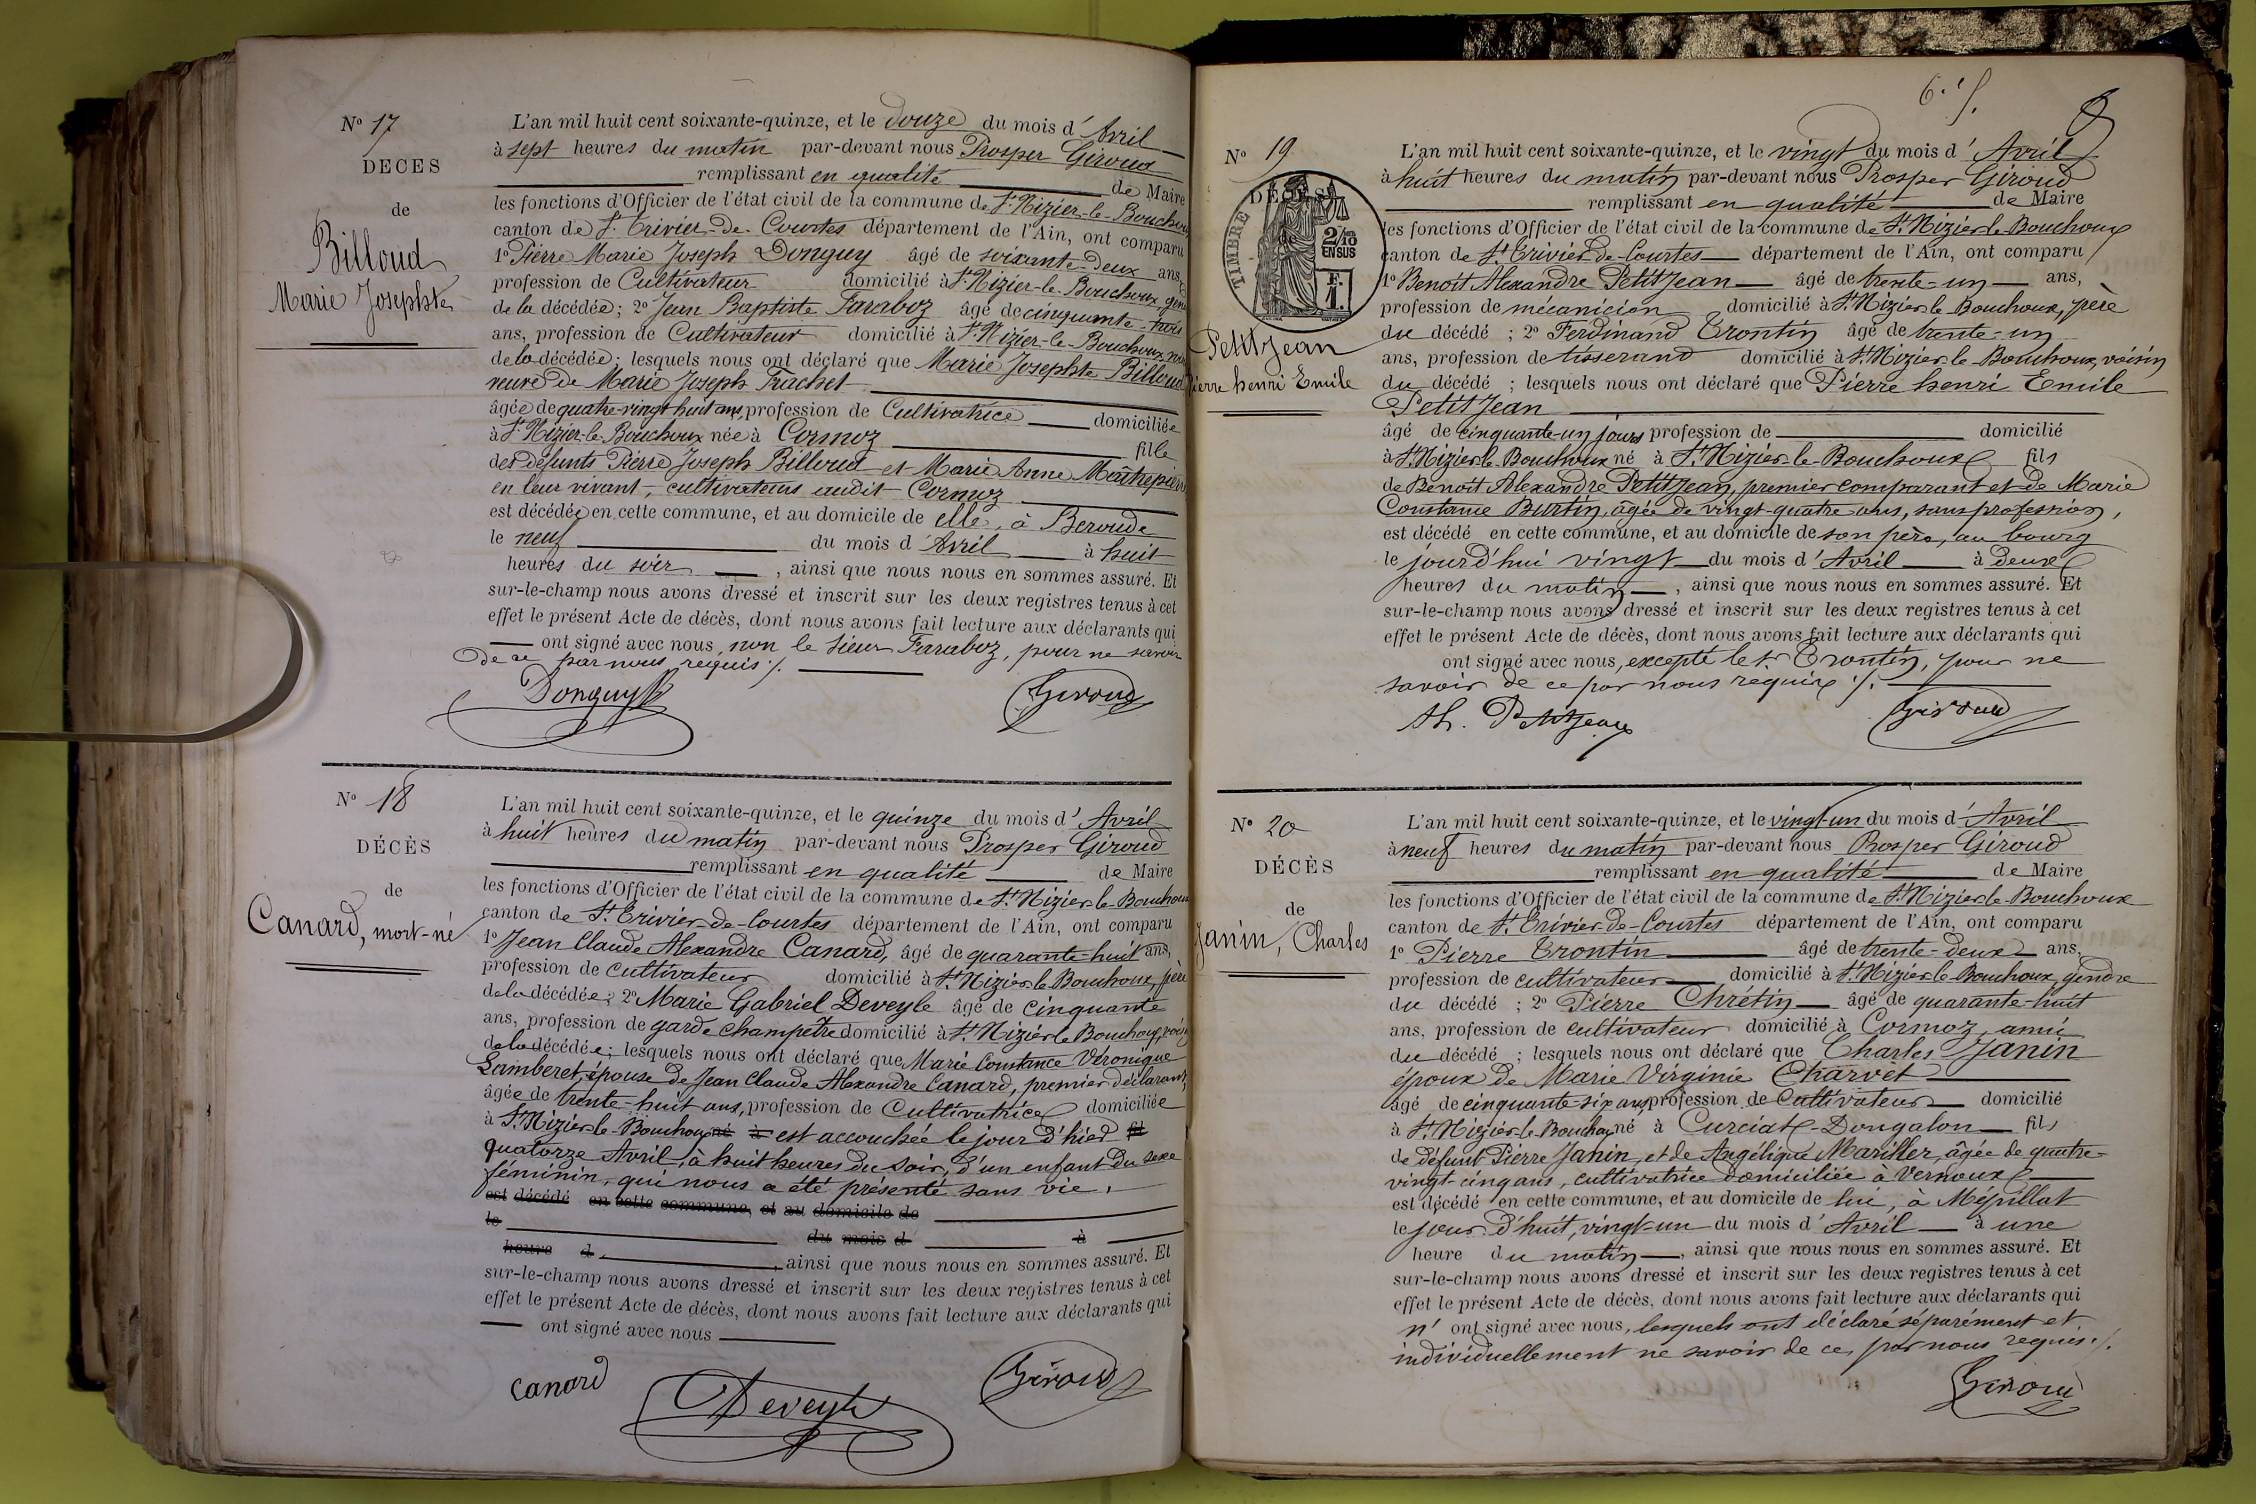 N° 17
DECES
de
Billoud
Marie Josephte
L'an mil huit cent soixante-quinze, et le douze du mois d' Avril
à sept heures du matin par-devant nous Prosper Giroud
remplissant en qualité de Maire
les fonctions d'Officier de l'état civil de la commune de St Nizier-le-Bouchoux
canton de St Trivier-de-Courtes département de l'Ain, ont comparu
1° Pierre Marie Joseph Donguy âgé de soixante-deux ans,
profession de Cultivateur domicilié à St Nizier-le-Bouchoux, gendre
de la décédée; 2° Jean Baptiste Faraboz âgé de cinquante-trois
ans, profession de Cultivateur domicilié à St Nizier-le-Bouchoux,
de la décédée; lesquels nous ont déclaré que Marie Josephte Billoud
veuve de Marie Joseph Trachet
âgée de quatre-vingt huit ans, profession de Cultivatrice domiciliée
à St Nizier-le-Bouchoux née à Cormoz fille
des défunts Pierre Joseph Billoud et Marie Anne Maîtrepierre
en leur vivant, cultivateurs audit Cormoz
est décédée en cette commune, et au domicile de elle, à Beroude
le neuf du mois d'Avril à huit
heures du soir, ainsi que nous nous en sommes assuré. Et
sur-le-champ nous avons dressé et inscrit sur les deux registres tenus à cet
effet le présent Acte de décès, dont nous avons fait lecture aux déclarants qui
ont signé avec nous, non le sieur Faraboz, pour ne savoir
de ce par nous requis ./.
Donguy Giroud
N° 18
DÉCÈS
de
Canard, mort-né
L'an mil huit cent soixante-quinze, et le quinze du mois d' Avril
à huit heures du matin par-devant nous Prosper Giroud
remplissant en qualité de Maire
les fonctions d'Officier de l'état civil de la commune de St Nizier-le-Bouchoux
canton de St Trivier-de-Courtes département de l'Ain, ont comparu
1° Jean Claude Alexandre Canard, âgé de quarante-huit ans,
profession de cultivateur domicilié à St Nizier-le-Bouchoux, père
de la décédée; 2° Marie Gabriel Deveyle âgé de cinquante
ans, profession de garde champêtre domicilié à St Nizier-le-Bouchoux, voisin
de la décédée; lesquels nous ont déclaré que Marie Constance Véronique
Lamberet, épouse de Jean Claude Alexandre Canard, premier déclarant,
âgée de trente-huit ans, profession de Cultivatrice domiciliée
à St Nizier-le-Bouchoux né à est accouchée le jour d'hier fil
quatorze Avril, à huit heures du soir, d'un enfant du sexe
féminin, qui nous a été présenté sans vie,
est décédé en cette commune, et au domicile de
le du mois d à
heure d , ainsi que nous nous en sommes assuré. Et
sur-le-champ nous avons dressé et inscrit sur les deux registres tenus à cet
effet le présent Acte de décès, dont nous avons fait lecture aux déclarants qui
ont signé avec nous
Canard Deveyle Giroud
6. ./.
N° 19
TIMBRE DÉCÈS
2/10 EN SUS
F. 1.
Petitjean
Pierre henri Emile
L'an mil huit cent soixante-quinze, et le vingt du mois d' Avril
à huit heures du matin par-devant nous Prosper Giroud
remplissant en qualité de Maire
les fonctions d'Officier de l'état civil de la commune de St Nizier-le-Bouchoux
canton de St Trivier-de-Courtes département de l'Ain, ont comparu
1° Benoit Alexandre Petitjean âgé de trente-un ans,
profession de mécanicien domicilié à St Nizier-le-Bouchoux, père
du décédé ; 2° Ferdinand Trontin âgé de trente-un
ans, profession de tisserand domicilié à St Nizier-le-Bouchoux, voisin
du décédé ; lesquels nous ont déclaré que Pierre henri Emile
Petitjean
âgé de cinquante-un jours profession de domicilié
à St Nizier-le-Bouchoux né à St Nizier-le-Bouchoux fils
de Benoit Alexandre Petitjean, premier comparant et de Marie
Constance Burtin, âgée de vingt-quatre ans, sans profession,
est décédé en cette commune, et au domicile de son père, au bourg
le jourd'hui vingt du mois d'Avril à deux
heures du matin, ainsi que nous nous en sommes assuré. Et
sur-le-champ nous avons dressé et inscrit sur les deux registres tenus à cet
effet le présent Acte de décès, dont nous avons fait lecture aux déclarants qui
ont signé avec nous, excepté le sr Trontin, pour ne
savoir de ce par nous requis ./.
Petitjean Giroud
N° 20
DÉCÈS
de
Janin, Charles
L'an mil huit cent soixante-quinze, et le vingt-un du mois d'Avril
à neuf heures du matin par-devant nous Prosper Giroud
remplissant en qualité de Maire
les fonctions d'Officier de l'état civil de la commune de St Nizier-le-Bouchoux
canton de St Trivier-de-Courtes département de l'Ain, ont comparu
1° Pierre Trontin âgé de trente-deux ans,
profession de cultivateur domicilié à St Nizier-le-Bouchoux, gendre
du décédé ; 2° Pierre Chrétin âgé de quarante-huit
ans, profession de cultivateur domicilié à Cormoz, ami
du décédé ; lesquels nous ont déclaré que Charles Janin
époux de Marie Virginie Charvet
âgé de cinquante six ans profession de Cultivateur domicilié
à St Nizier-le-Bouchoux né à Curciat-Dongalon fils
de défunt Pierre Janin, et de Angélique Mariller, âgée de quatre-
vingt-cinq ans, cultivatrice domiciliée à Vernoux
est décédé en cette commune, et au domicile de lui, à Mépillat
le jour d'huit, vingt-un du mois d'Avril à une
heure du matin, ainsi que nous nous en sommes assuré. Et
sur-le-champ nous avons dressé et inscrit sur les deux registres tenus à cet
effet le présent Acte de décès, dont nous avons fait lecture aux déclarants qui
n' ont signé avec nous, lesquels ont déclaré séparément et
individuellement ne savoir de ce, par nous requis ./.
Giroud